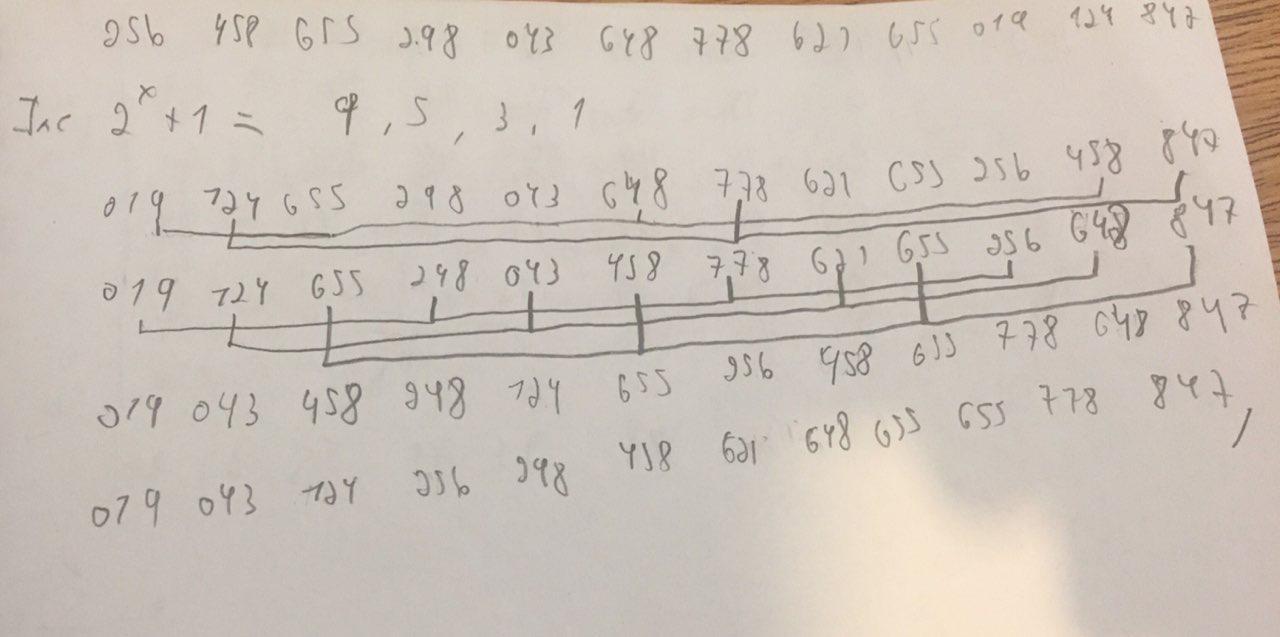 256 458 655 298 043 648 778 621 655 019 124 847
Inc 2^x + 1 = 9, 5, 3, 1
019 124 655 298 043 648 778 621 655 256 458 847
019 124 655 298 043 458 778 621 655 256 648 847
019 043 458 298 124 655 256 458 655 778 648 847
019 043 124 256 298 458 621 648 655 655 778 847,